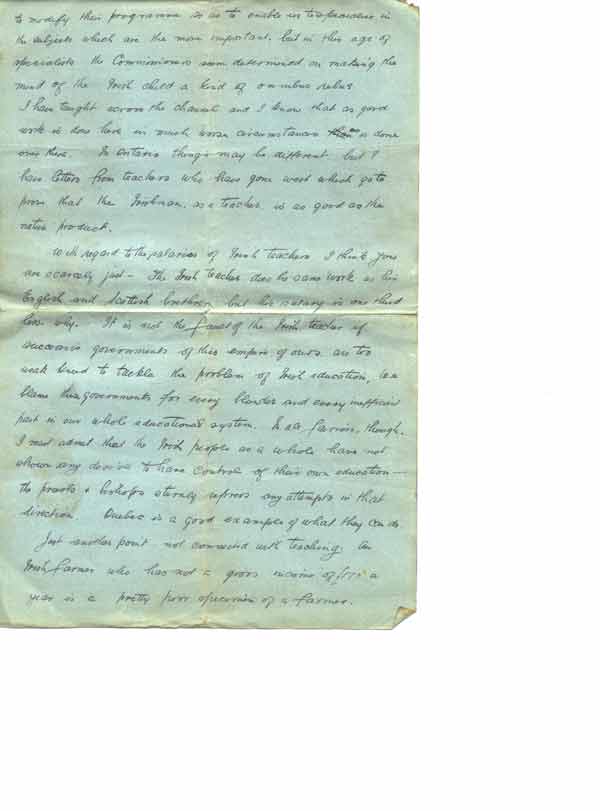 to modify their programme so as to enable us to specialise in
the subjects which are the more important, but in this age of
specialists the Commissioners seem determined on making the
mind of the Irish child a kind of omnibus rebus
I have taught across the channel and I know that as good
work is done here in much worse circumstances than is done
over there. In Ontario things may be different but I
have letters from teachers who have gone west which go to
prove that the Irishman, as a teacher, is as good as the
native product.
With regard to the salaries of Irish teachers I think you
are scarcely just - The Irish teacher does the same work as his
English and Scottish brethren but his salary is one third
less. why. It is not the fault of the Irish teacher if
successive governments of this empire of ours are too
weak kneed to tackle the problem of Irish education,
blame these governments for every blunder and every inefficient
part in our whole educational system. In all fairness, though,
I must admit that the Irish people as a whole have not
shown any desire to have control of their own education —
the priests & bishops sternly repress any attempts in that
direction. Quebec is a good example of what they can do
Just another point not connected with teaching. An
Irish farmer who has not a gross income of a
year is a pretty poor specimen of a farmer.